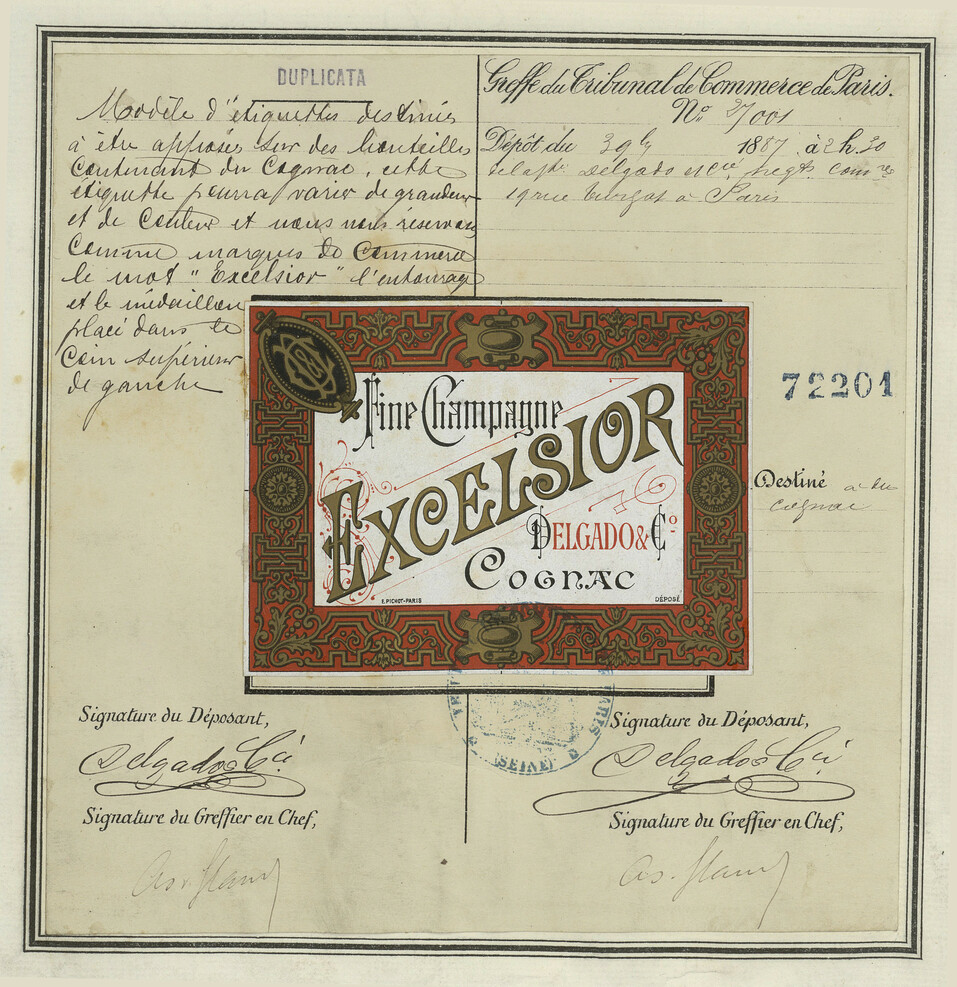 DUPLICATA
Modèle d'étiquettes destinés
à être apposées sur des bouteilles
Contenant du Cognac, cette
étiquette pourra varier de grandeur
et de couleur et nous nous réservons
Comme marques de Commerce
le mot "Excelsior" l'entourage
et le médaillon
placé dans le
Coin supérieur
de gauche
Greffe du Tribunal de Commerce de Paris.
No. 27001
Dépôt du 3 9b 1887 à 2 h. 30
Delgado et Cie
à Paris
72201
Destiné à du
cognac
Fine Champagne
EXCELSIOR
DELGADO & Co
COGNAC
E. PICHOT-PARIS
DÉPOSÉ
PARIS
(SEINE)
Signature du Déposant,
Delgado & Cie
Signature du Greffier en Chef,
Signature du Déposant,
Delgado & Cie
Signature du Greffier en Chef,